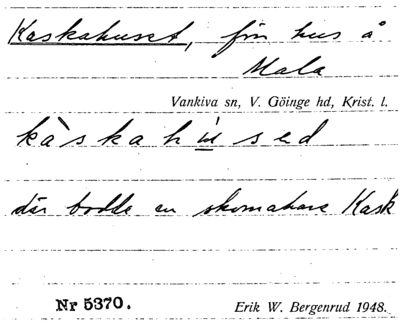 Kaskahuset, förr hus å
Mala
Vankiva sn, V. Göinge hd, Krist. l.
kàskahúsed
där bodde en skomakare Kask
Nr 5370.
Erik W. Bergenrud 1948.